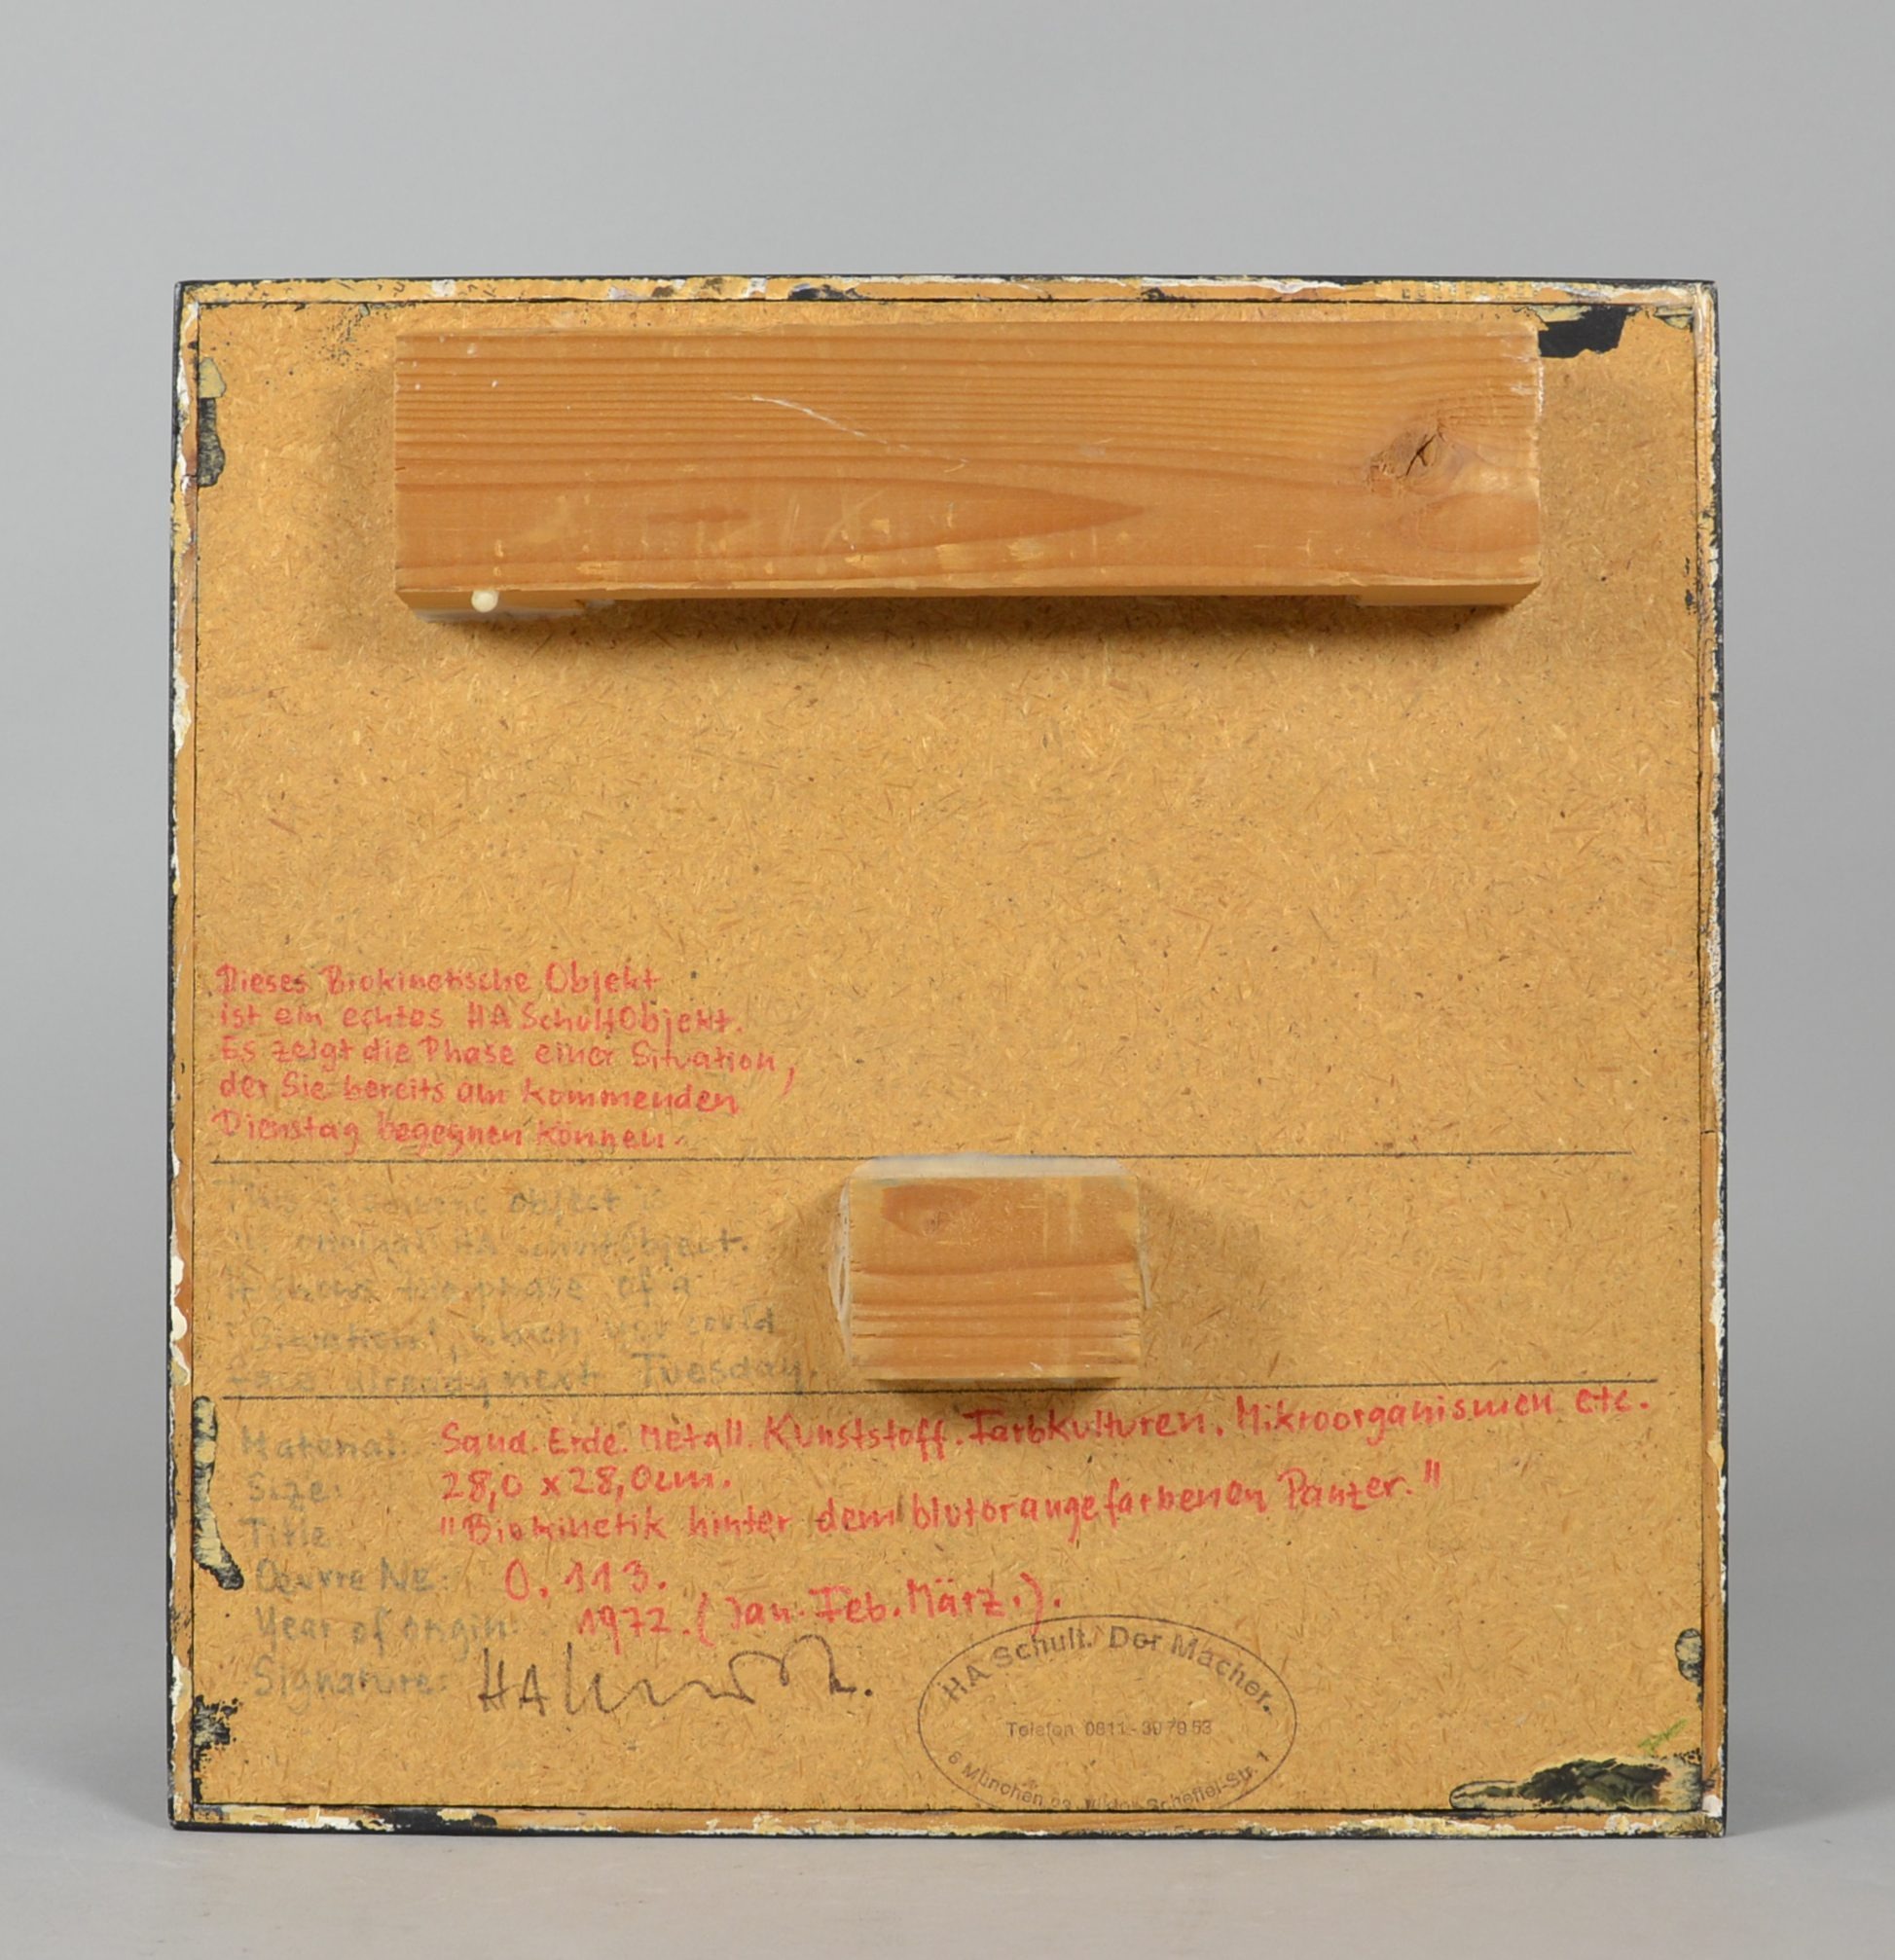 Dieses Biokinetische Objekt
ist ein echtes HA SchultObjekt.
Es zeigt die Phase einer Situation,
der Sie bereits am kommenden
Dienstag begegnen können.
This object is
original HA SchultObject.
It shows the phase of a
Situation, which you could
face already next Tuesday.
Material: Sand. Erde. Metall. Kunststoff. Farbkulturen. Mikroorganismen etc.
Size: 28,0 x 28,0cm.
Title: "Biokinetik hinter dem blutorangefarbenen Panzer."
Oeuvre No: O. 113.
Year of origin: 1972. (Jan. Feb. März.).
Signature: HA
HA Schult. Der Macher.
Telefon 0811-397953
8 München 23, Scheffel-Str. 1